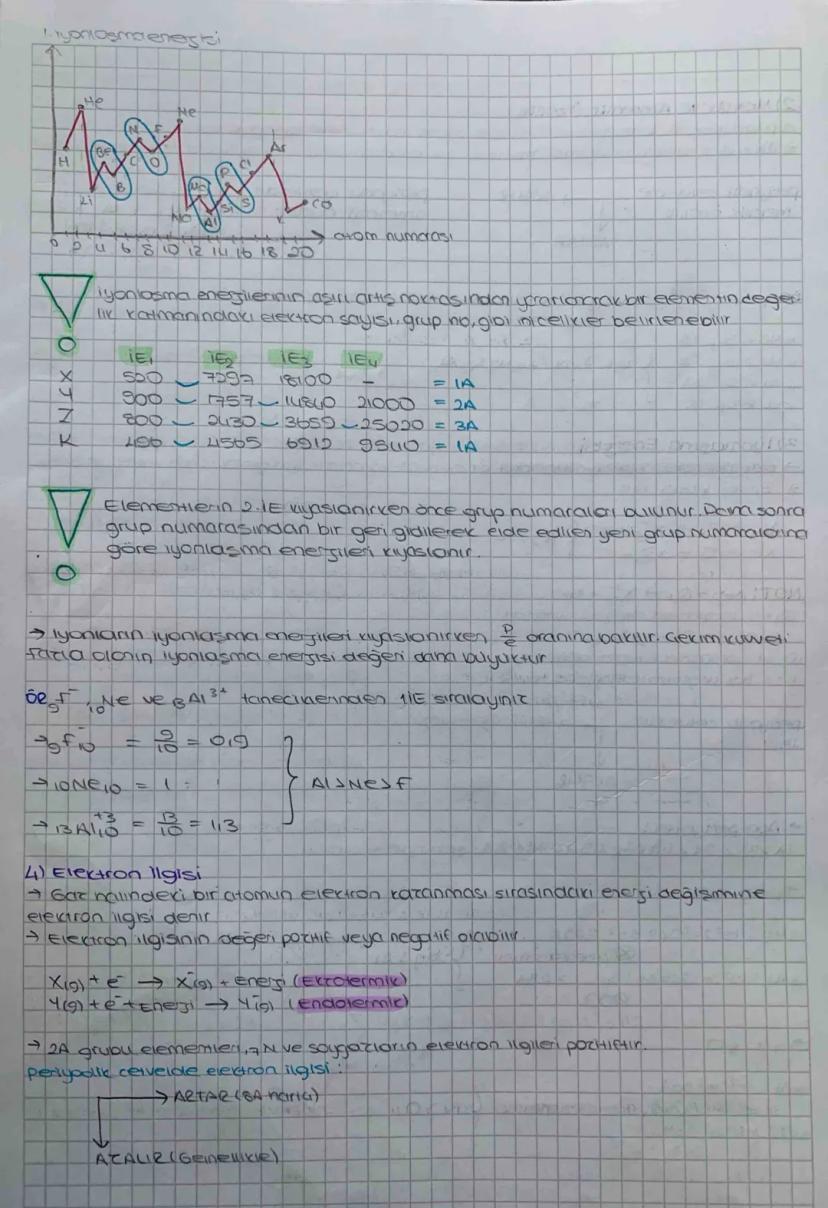 1. iyonlaşma enerjisi
He
Ne
N
F
Ar
H
Be
C
O
P
Cl
B
Mg
Li
Si
S
Na
Al
K
Ca
0 2 4 6 8 10 12 14 16 18 20
atom numarası
iyonlaşma enerjilerinin aşırı artış noktasından yararlanarak bir elementin değer-
lik katmanındaki elektron sayısı, grup no, gibi nicelikler belirlenebilir
İE1 İE2 İE3 İE4
X 520 7297 18100 - = 1A
Y 900 1757 14840 21000 = 2A
Z 800 2430 3659 25020 = 3A
K 496 4565 6912 9540 = 1A
Elementlerin 2.İE kıyaslanırken önce grup numaraları bulunur. Daha sonra
grup numarasından bir geri gidilerek elde edilen yeni grup numaralarına
göre iyonlaşma enerjileri kıyaslanır.
→ iyonların iyonlaşma enerjileri kıyaslanırken p/e oranına bakılır. Çekim kuvveti
fazla olanın iyonlaşma enerjisi değeri daha büyüktür
ÖR 9F⁻, 10Ne ve 13Al³⁺ taneciklerinden 1İE sıralayınız
→ 9F⁻10 = 9/10 = 0,9
→ 10Ne10 = 1
Al>Ne>F
→ 13Al⁺³10 = 13/10 = 1,3
4) Elektron ilgisi
→ Gaz halindeki bir atomun elektron kazanması sırasındaki enerji değişimine
elektron ilgisi denir
→ Elektron ilgisinin değeri pozitif veya negatif olabilir
X(g) + e⁻ → X⁻(g) + enerji (Ekzotermik)
Y(g) + e⁻ + Enerji → Y⁻(g) (Endotermik)
→ 2A grubu elementleri, 7N ve soygazların elektron ilgileri pozitiftir.
Periyodik cetvelde elektron ilgisi:
→ ARTAR (8A hariç)
AZALIR (Genellikle)